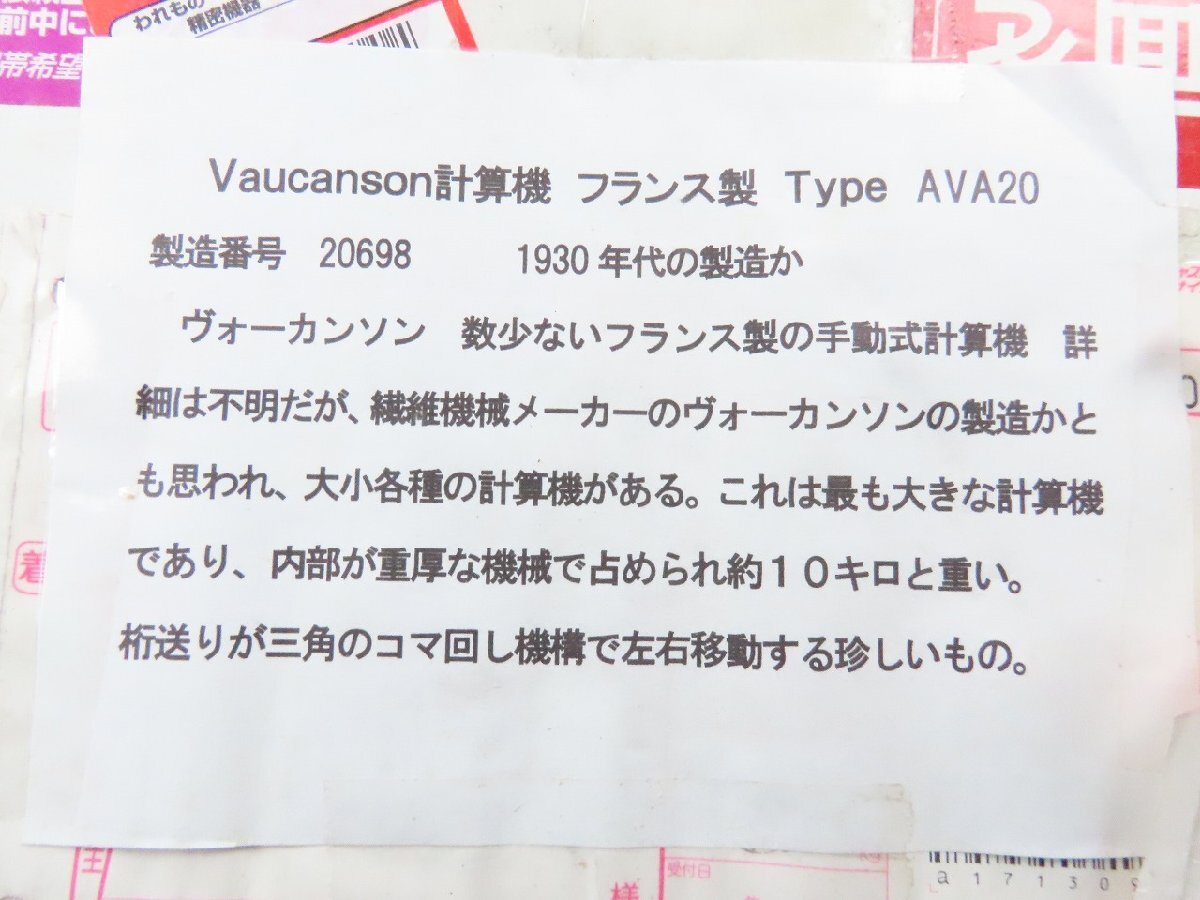 前中に
帯希望
われもの
精密機器
Vaucanson計算機 フランス製 Type AVA20
製造番号 20698 1930年代の製造か
ヴォーカンソン 数少ないフランス製の手動式計算機 詳
細は不明だが、繊維機械メーカーのヴォーカンソンの製造かと
も思われ、大小各種の計算機がある。これは最も大きな計算機
であり、内部が重厚な機械で占められ約10キロと重い。
桁送りが三角のコマ回し機構で左右移動する珍しいもの。
着
主
様
受付日
a171309